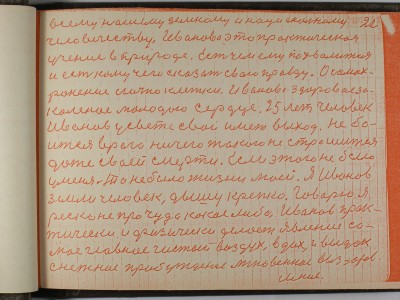 всему нашему земному и национальному 22
человечеству. Иванова это практическая
учение в природе. Есть чем ему похвалиться
и есть кому чего сказать свою правду. О самох-
ранение клетки. У Иванова здоровое за-
каленое молодого сердце. 25 лет человек
Иванов у света свой имеет выход. Не бо-
ится врага ничего такого не страшится
даже своей смерти. Если этого не было
у меня. То не было жизни моей. Я Иванов
земли человек, дышу крепко. Говорю я
резко не про чудо какое либо, Иванов прак-
тически и физически делает явление са-
мое главное чистый воздух, вдох и выдох
снежное пробуждение мгновенное выздоров
ление.